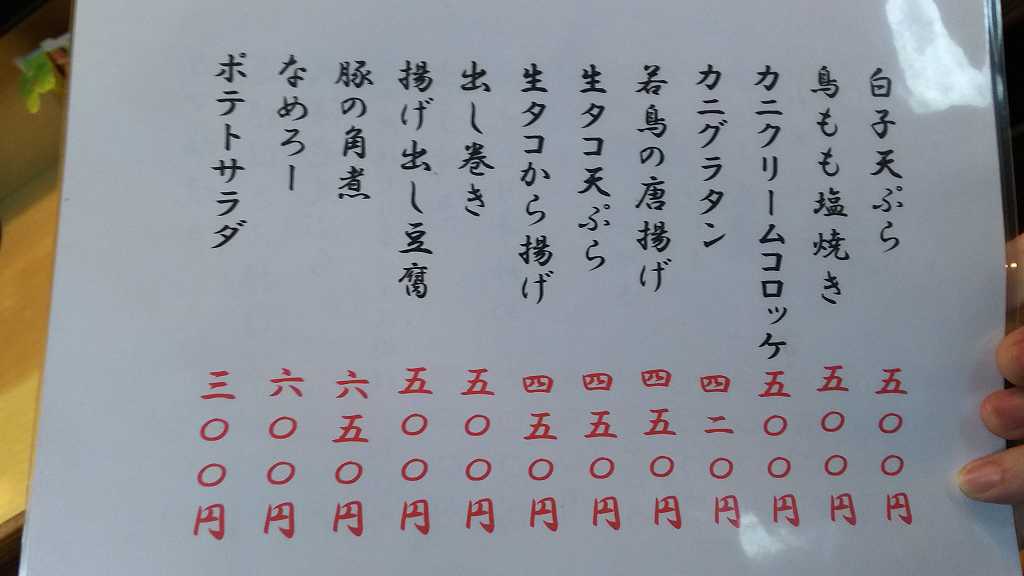 白子天ぷら 五〇〇円
鳥もも塩焼き 五〇〇円
カニクリームコロッケ 五〇〇円
カニグラタン 四二〇円
若鳥の唐揚げ 四五〇円
生タコ天ぷら 四五〇円
生タコから揚げ 四五〇円
出し巻き 五〇〇円
揚げ出し豆腐 五〇〇円
豚の角煮 六五〇円
なめろー 六〇〇円
ポテトサラダ 三〇〇円